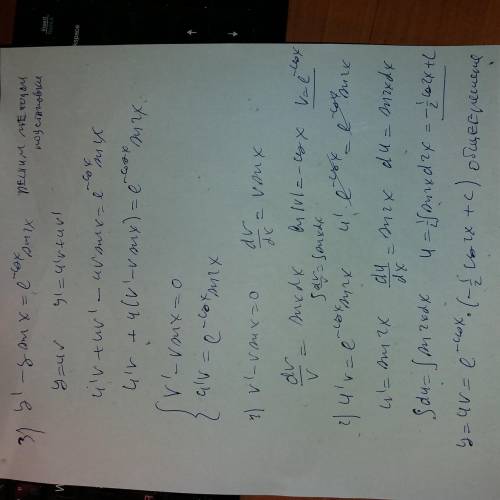 3) y' - y sin x = e^{-cos x} sin 2x решим методом
подстановки
y = uv y' = u'v + uv'
u'v + uv' - uv sin x = e^{-cos x} sin 2x
u'v + u(v' - v sin x) = e^{-cos x} sin 2x
{ v' - v sin x = 0
u'v = e^{-cos x} sin 2x
1) v' - v sin x = 0 dv/dx = v sin x
dv/v = sin x dx ∫ dv/v = ∫ sin x dx ln|v| = -cos x v = e^{-cos x}
2) u'v = e^{-cos x} sin 2x u' e^{-cos x} = e^{-cos x} sin 2x
u' = sin 2x du/dx = sin 2x du = sin 2x dx
∫ du = ∫ sin 2x dx u = 1/2 ∫ sin 2x d2x = -1/2 cos 2x + C
y = uv = e^{-cos x} · (-1/2 cos 2x + C) общее решение